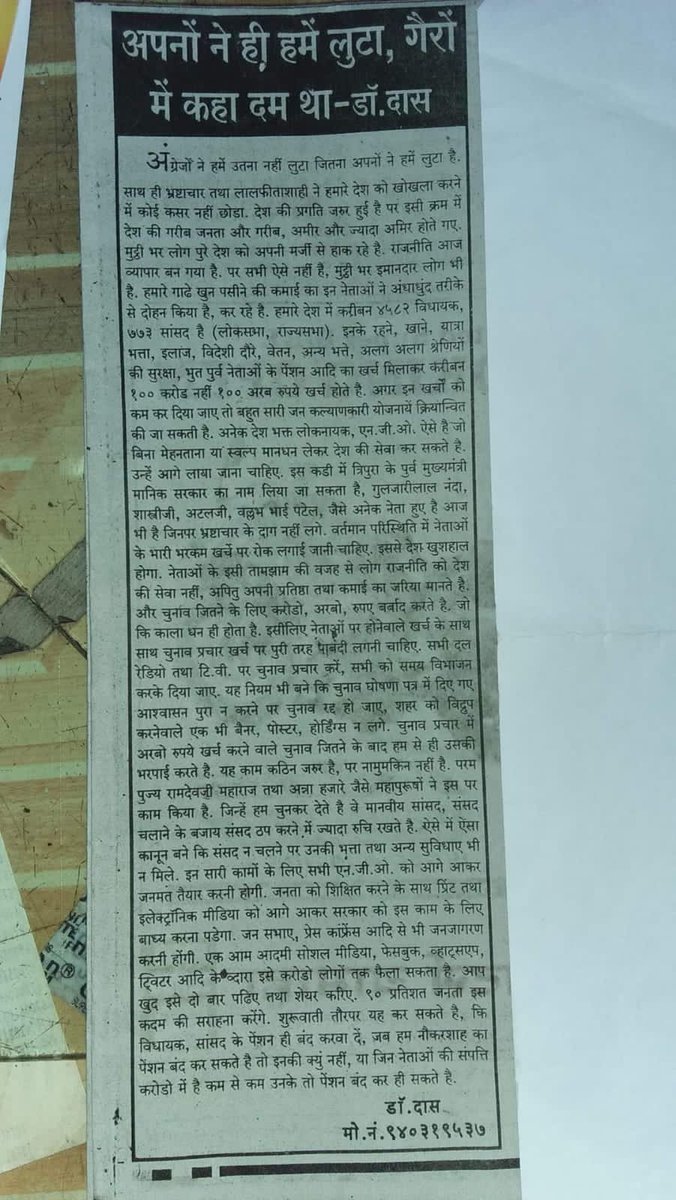 अपनों ने ही हमें लुटा, गैरों
में कहा दम था-डॉ.दास
अंग्रेजों ने हमें उतना नहीं लुटा जितना अपनों ने हमें लुटा है.
साथ ही भ्रष्टाचार तथा लालफीताशाही ने हमारे देश को खोखला करने
में कोई कसर नहीं छोडा. देश की प्रगति जरुर हुई है पर इसी क्रम में
देश की गरीब जनता और गरीब, अमीर और ज्यादा अमिर होते गए.
मुट्ठी भर लोग पुरे देश को अपनी मर्जी से हाक रहे है. राजनीति आज
व्यापार बन गया है. पर सभी ऐसे नहीं है, मुट्ठी भर इमानदार लोग भी
है. हमारे गाढे खुन पसीने की कमाई का इन नेताओं ने अंधाधुंद तरीके
से दोहन किया है, कर रहे है. हमारे देश में करीबन ४५८२ विधायक,
७७३ सांसद है (लोकसभा, राज्यसभा). इनके रहने, खाने, यात्रा
भत्ता, इलाज, विदेशी दौरे, वेतन, अन्य भत्ते, अलग अलग श्रेणियों
की सुरक्षा, भुत पुर्व नेताओं के पेंशन आदि का खर्च मिलाकर करीबन
१०० करोड नहीं १०० अरब रुपये खर्च होते है. अगर इन खर्चों को
कम कर दिया जाए तो बहुत सारी जन कल्याणकारी योजनायें क्रियान्वित
की जा सकती है. अनेक देश भक्त लोकनायक, एन.जी.ओ. ऐसे है जो
बिना मेहनताना या स्वल्प मानधन लेकर देश की सेवा कर सकते है.
उन्हें आगे लाया जाना चाहिए. इस कडी में त्रिपुरा के पुर्व मुख्यमंत्री
मानिक सरकार का नाम लिया जा सकता है, गुलजारीलाल नंदा,
शास्त्रीजी, अटलजी, वल्लभ भाई पटेल, जैसे अनेक नेता हुए है आज
भी है जिनपर भ्रष्टाचार के दाग नहीं लगे. वर्तमान परिस्थिति में नेताओं
के भारी भरकम खर्चे पर रोक लगाई जानी चाहिए. इससे देश खुशहाल
होगा. नेताओं के इसी तामझाम की वजह से लोग राजनीति को देश
की सेवा नहीं, अपितु अपनी प्रतिष्ठा तथा कमाई का जरिया मानते है.
और चुनांव जितने के लिए करोडो, अरबो, रुपए बर्बाद करते है. जो
कि काला धन ही होता है. इसीलिए नेताओं पर होनेवाले खर्च के साथ
साथ चुनाव प्रचार खर्च पर पुरी तरह पाबंदी लगनी चाहिए. सभी दल
रेडियो तथा टि.वी. पर चुनाव प्रचार करें, सभी को समय विभाजन
करके दिया जाए. यह नियम भी बने कि चुनाव घोषणा पत्र में दिए गए
आश्वासन पुरा न करने पर चुनाव रद्द हो जाए, शहर को विद्रुप
करनेवाले एक भी बैनर, पोस्टर, होर्डिंग्स न लगे. चुनाव प्रचार में
अरबो रुपये खर्च करने वाले चुनाव जितने के बाद हम से ही उसकी
भरपाई करते है. यह काम कठिन जरुर है, पर नामुमकिन नहीं है. परम
पुज्य रामदेवजी महाराज तथा अन्ना हजारे जैसे महापुरूषों ने इस पर
काम किया है. जिन्हें हम चुनकर देते है वे मानवीय सांसद, संसद
चलाने के बजाय संसद ठप करने में ज्यादा रुचि रखते है. ऐसे में ऐसा
कानून बने कि संसद न चलने पर उनकी भत्ता तथा अन्य सुविधाए भी
न मिले. इन सारी कामों के लिए सभी एन.जी.ओ. को आगे आकर
जनमत तैयार करनी होगी. जनता को शिक्षित करने के साथ प्रिंट तथा
इलेक्ट्रॉनिक मीडिया को आगे आकर सरकार को इस काम के लिए
बाध्य करना पडेगा. जन सभाए, प्रेस कांफ्रेंस आदि से भी जनजागरण
करनी होंगी. एक आम आदमी सोशल मीडिया, फेसबुक, व्हाट्सएप,
ट्विटर आदि के व्दारा इसे करोडो लोगों तक फैला सकता है. आप
खुद इसे दो बार पढिए तथा शेयर करिए. ९० प्रतिशत जनता इस
कदम की सराहना करेंगे. शुरूवाती तौरपर यह कर सकते है, कि
विधायक, सांसद के पेंशन ही बंद करवा दें, जब हम नौकरशाह का
पेंशन बंद कर सकते है तो इनकी क्युं नहीं, या जिन नेताओं की संपत्ति
करोडो में है कम से कम उनके तो पेंशन बंद कर ही सकते है.
डॉ.दास
मो.नं.९४०३१९५३७